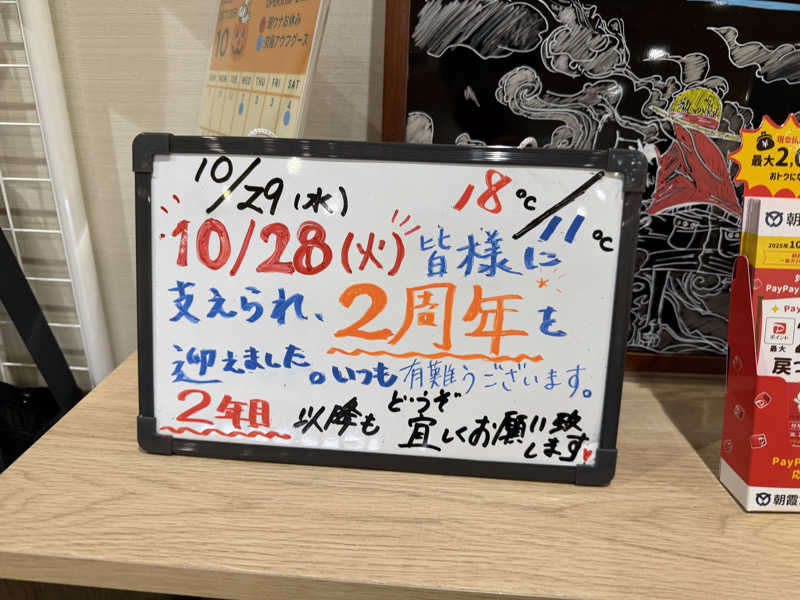 10
朔ウナお休み
SUN MON TUE WED THU FRI SAT
1 2 3 4
10/29(水)
18℃/11℃
10/28(火)皆様に
支えられ、2周年を
迎えました。いつも有難うございます。
2年目以降もどうぞ宜しくお願い致します♥
最大2,0
おトクにな
朝
2025年10
PayPay
ポイント
最大
戻っ
PayP
朝霞